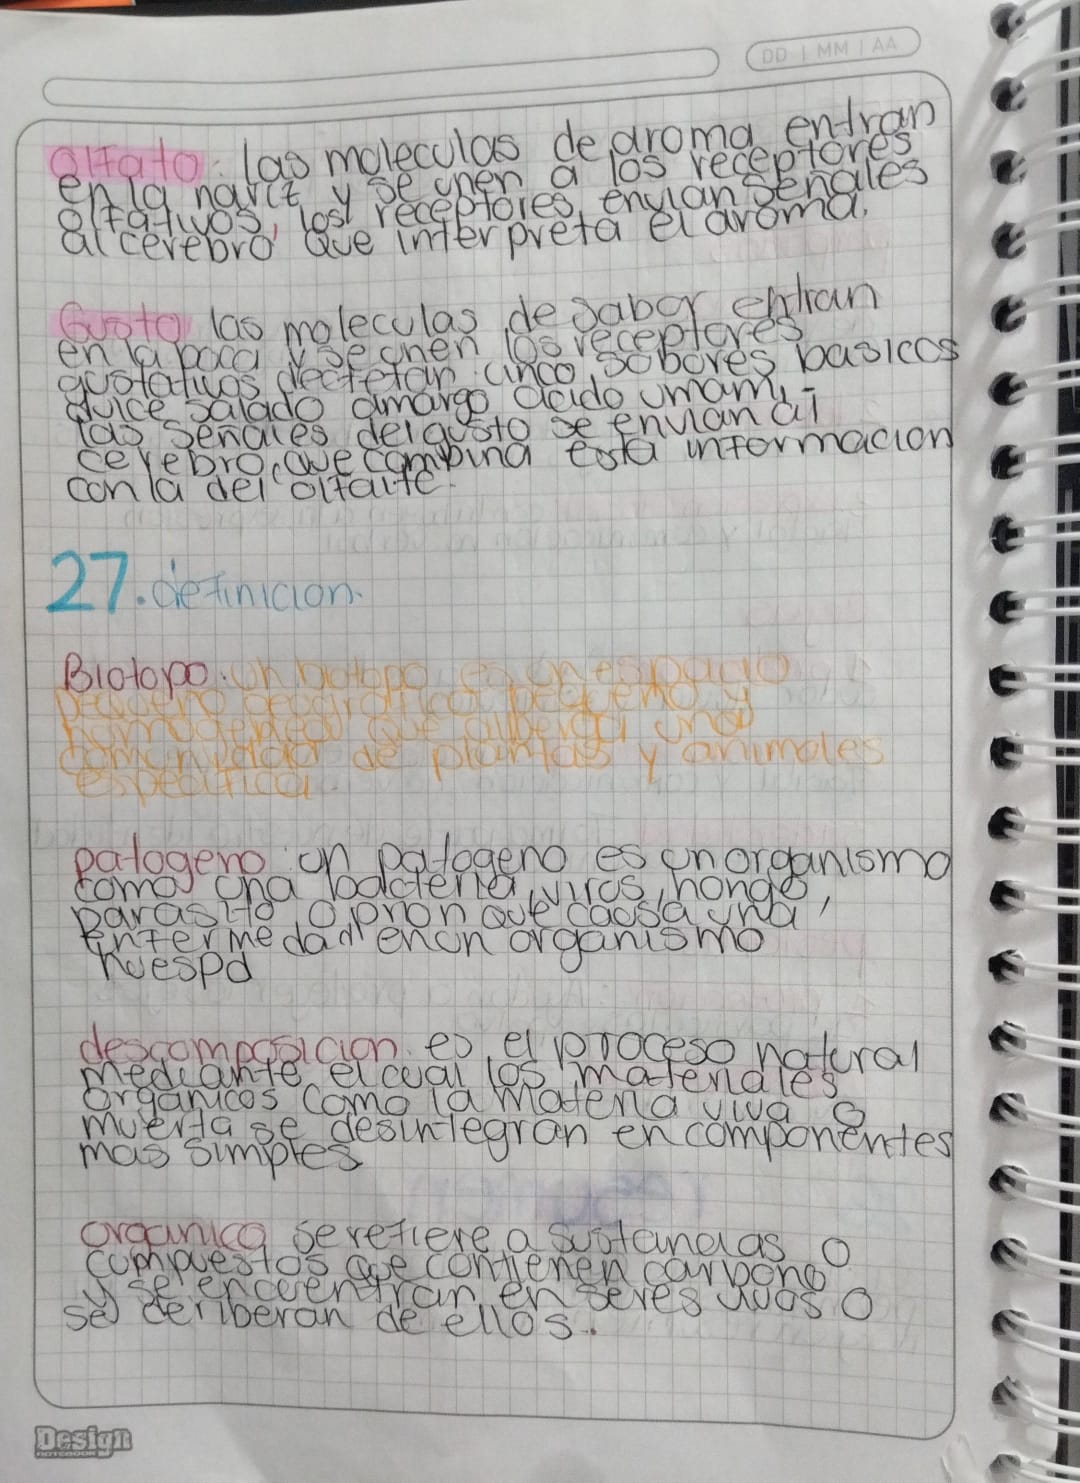 DD | MM | AA
olfato: las moleculas de aroma entran
en la nariz y se unen a los receptores
olfativos, los receptores envian señales
al cerebro que interpreta el aroma.
Gusto las moleculas de sabor entran
en la boca y se unen los receptores
gustativos dectetan cinco sobores basicos
dulce salado amargo acido umami -
las señales del gusto se envian al
cerebro, que combina esta informacion
con la del olfaite.
27. definicion.
Biotopo: un biotopo es un espacio
pequeno geografico pequeno y
homogeneo que alberga una
comunidad de plantas y animales
especifica.
patogeno: un patogeno es un organismo
como una bacteria, virus, hongo,
parasito o prion que causa una
enfermedad en un organismo
huespd
descomposicion. es el proceso natural
mediante el cual los materiales
organicos como la materia viva o
muerta se desintegran en componentes
mas simples
organico se refiere a sustancias o
compuestos que contienen carbono
y se encuentran en seres vivos o
se deriberan de ellos.
Design
NOTEBOOK